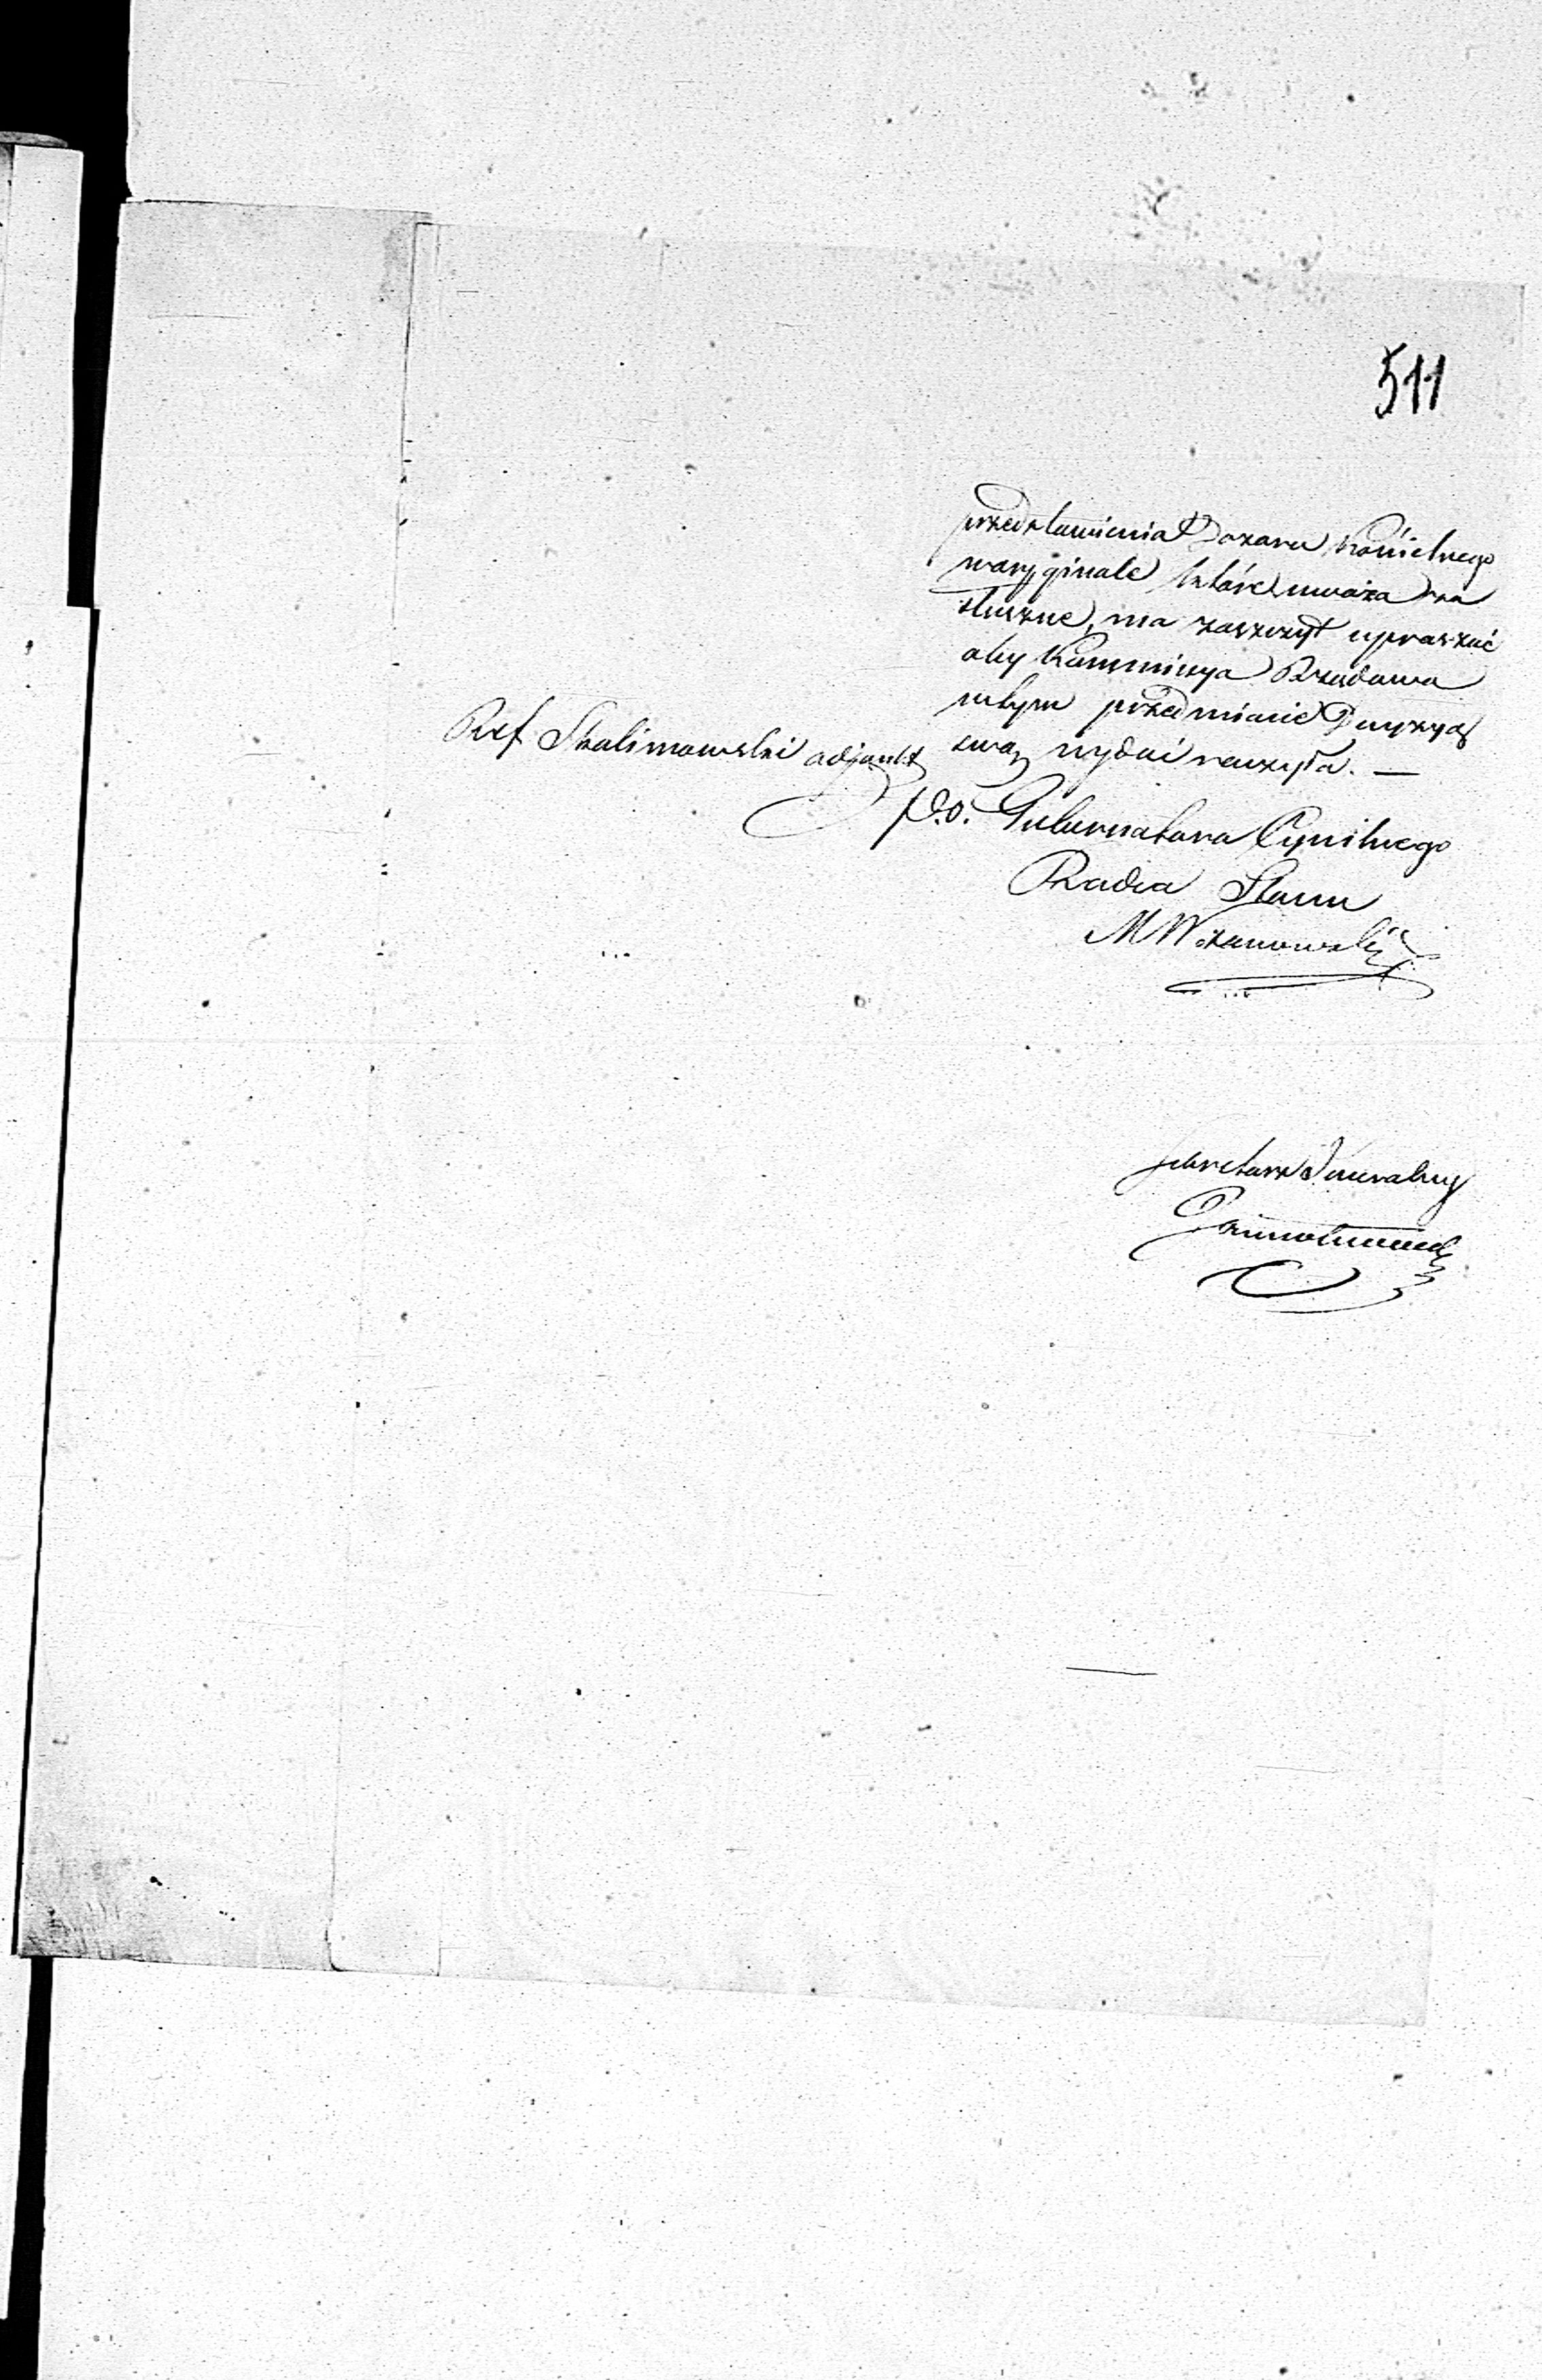 511
przedstawienia Dozoru Kościelnego
woryginale, które uważa za
słuszne, ma zaszczyt upraszać
aby Kommissya Rządowa
wtym przedmiocie Decyzyą
swą wydać raczyła. —
Ref Skalimowski adjunkt
p.o. Gubernatora Cywilnego
Radca Stanu
M
Sekretarz Jeneralny